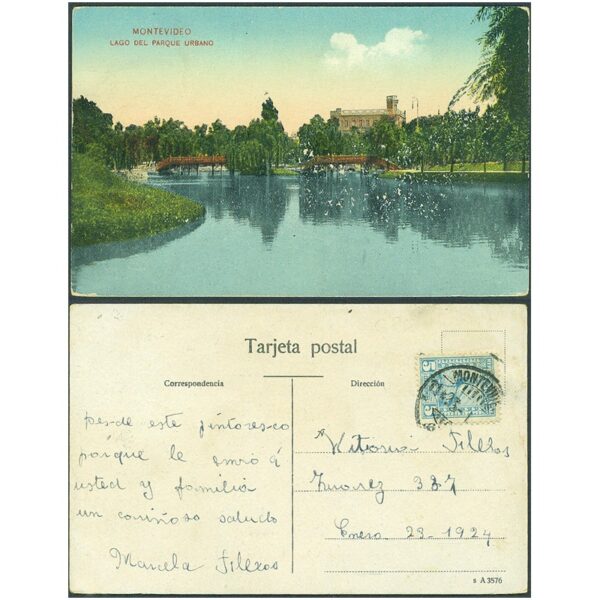 MONTEVIDEO
LAGO DEL PARQUE URBANO
Tarjeta postal
Correspondencia
Dirección
5 5
MONTEVIDEO
des-de este pintores-co
porque le envio á
usted y familia
un cariñoso saludo
Marcela Filezos
A Vitoria Filezos
337
Enero 23-1924
s A 3576